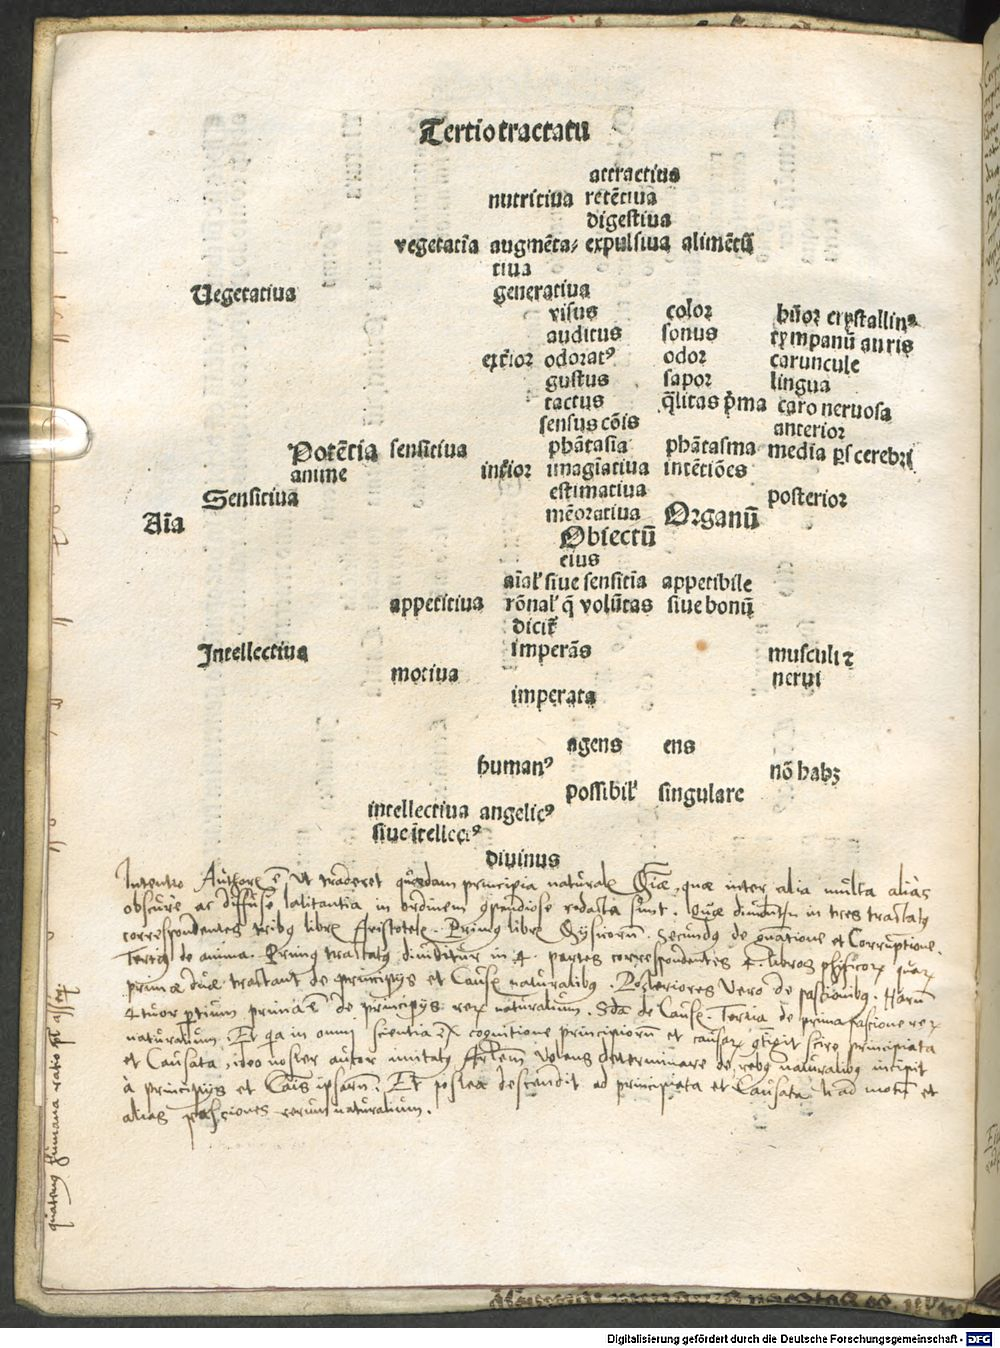 Tertio tractatu
attractiua
nutritiua retētiua
digestiua
vegetatīa augmēta⸗ expulsiua alimētū
tiua
Uegetatiua generatiua
visus color hūor crystallinꝰ
auditus sonus tympanū auris
exťior odoratꝰ odor caruncule
gustus sapor lingua
tactus q̄litas p̄ma caro neruosa
sensus cōis anterior
Potētia sensitiua phātasia phātasma media ꝑs cerebri
anime inťior imagiatiua intētiōes
Sensitiua estimatiua posterior
Aīa mēoratiua Organū
Obiectū
eius
aīal' siue sensitīa appetibile
appetitiua rōnal' q̄ volūtas siue bonū
dicit̄
Intellectiua imperās musculi ⁊
motiua nerui
imperata
agens ens
humanꝰ nō habꝫ
possibil' singulare
intellectiua angelicꝰ
siue ītellectꝰ
diuinus
Intentio Authoris ē Ut traderet quædam principia naturalis quæ inter alia multa aliàs
obscure ac diffuse latitantia in ordinem redacta sunt. Quæ in tres tractatꝰ
correspondentes tribꝰ libris Aristotelis. Primꝰ libris Secundꝰ de et Corruptione.
Tertiꝰ de anima. Primꝰ tractatꝰ diuiditur in 4 partes correspondentes 4 libros
primæ duæ tractant de principijs et Causis naturalibꝰ. Posteriores Vero de passionibꝰ. Harum
4tuor ꝑtium prima ē de principijs rerum naturalium. Sda de Causis. Tertia de
naturalium. Et in omni scientia cognitione principiorum et causarum scire principiata
et Causata, ideo noster autor imitatꝰ Volens determinare de rebꝰ naturalibꝰ incipit
à principijs et Causis ipsarum. Et postea descendit ad principiata et Causata ad motum et
alias passiones rerum naturalium.
humana ratio
Digitalisierung gefördert durch die Deutsche Forschungsgemeinschaft - DFG